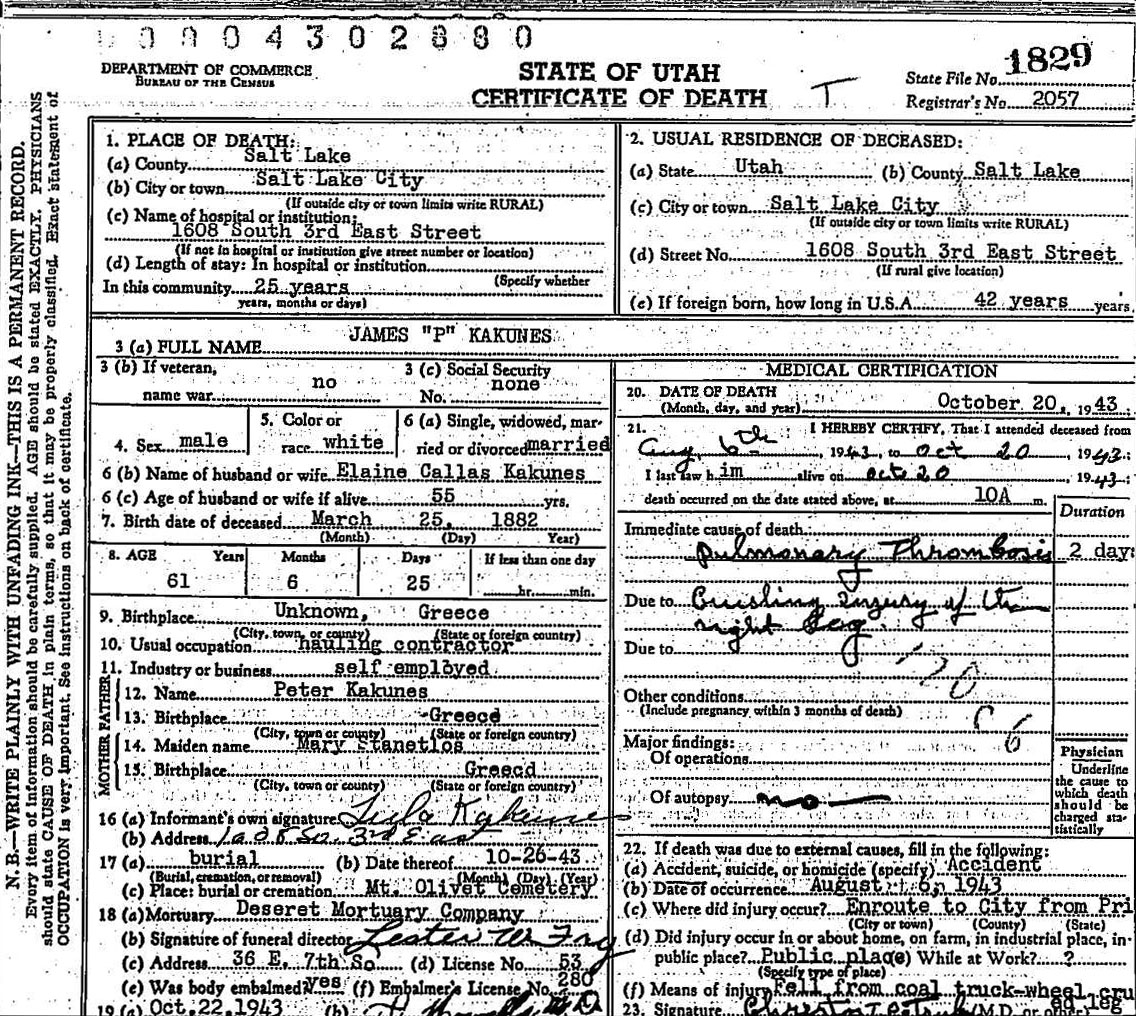 0 0 0 0 4 3 0 2 8 8 0
DEPARTMENT OF COMMERCE
BUREAU OF THE CENSUS
STATE OF UTAH
CERTIFICATE OF DEATH
T
State File No. 1829
Registrar's No. 2057
N. B.—WRITE PLAINLY WITH UNFADING INK—THIS IS A PERMANENT RECORD.
Every item of information should be carefully supplied. AGE should be stated EXACTLY. PHYSICIANS
should state CAUSE OF DEATH in plain terms, so that it may be properly classified. Exact statement of
OCCUPATION is very important. See instructions on back of certificate.
1. PLACE OF DEATH:
(a) County Salt Lake
(b) City or town Salt Lake City
(If outside city or town limits write RURAL)
(c) Name of hospital or institution:
1608 South 3rd East Street
(If not in hospital or institution give street number or location)
(d) Length of stay: In hospital or institution
(Specify whether
In this community 25 years
years, months or days)
2. USUAL RESIDENCE OF DECEASED:
(a) State Utah (b) County Salt Lake
(c) City or town Salt Lake City
(If outside city or town limits write RURAL)
(d) Street No. 1608 South 3rd East Street
(If rural give location)
(e) If foreign born, how long in U.S.A. 42 years years.
3 (a) FULL NAME JAMES "P" KAKUNES
3 (b) If veteran, name war no
3 (c) Social Security No. none
4. Sex male
5. Color or race white
6 (a) Single, widowed, married or divorced married
6 (b) Name of husband or wife Elaine Callas Kakunes
6 (c) Age of husband or wife if alive 55 yrs.
7. Birth date of deceased March 25, 1882
(Month) (Day) Year)
8. AGE Years Months Days If less than one day
61 6 25 hr. min.
9. Birthplace Unknown, Greece
(City, town, or county) (State or foreign country)
10. Usual occupation hauling contractor
11. Industry or business self employed
FATHER
12. Name Peter Kakunes
13. Birthplace Greece
(City, town or county) (State or foreign country)
MOTHER
14. Maiden name Mary Stanetlos
15. Birthplace Greecd
(City, town or county) (State or foreign country)
16 (a) Informant's own signature Kakunes
(b) Address So. 3rd East
17 (a) burial (b) Date thereof 10-26-43
(Burial, cremation, or removal) (Month) (Day) (Year)
(c) Place: burial or cremation Mt. Olivet Cemetery
18 (a) Mortuary Deseret Mortuary Company
(b) Signature of funeral director Lester W Fry
(c) Address 36 E. 7th So (d) License No. 53
(e) Was body embalmed? yes (f) Embalmer's License No. 280
19 (a) Oct. 22, 1943 (b) M.D.
MEDICAL CERTIFICATION
20. DATE OF DEATH
(Month, day, and year) October 20, 1943
21. I HEREBY CERTIFY, That I attended deceased from
Aug. 6th, 1943, to Oct 20 1943;
I last saw him alive on Oct 20 1943;
death occurred on the date stated above, at 10A m.
Duration
Immediate cause of death
Pulmonary Thrombosis 2 days
Due to Crushing Injury of the
right leg.
Due to
120
Other conditions
(Include pregnancy within 3 months of death)
C 6
Major findings:
Of operations
Of autopsy no
Physician
Underline
the cause to
which death
should be
charged sta-
tistically
22. If death was due to external causes, fill in the following:
(a) Accident, suicide, or homicide (specify) Accident
(b) Date of occurrence August 6, 1943
(c) Where did injury occur? Enroute to City from Pri
(City or town) (County) (State)
(d) Did injury occur in or about home, on farm, in industrial place, in
public place? Public place) While at Work? ?
(Specify type of place)
(f) Means of injury Fell from coal truck-wheel cru
ed leg
23. Signature (M.D. or other)